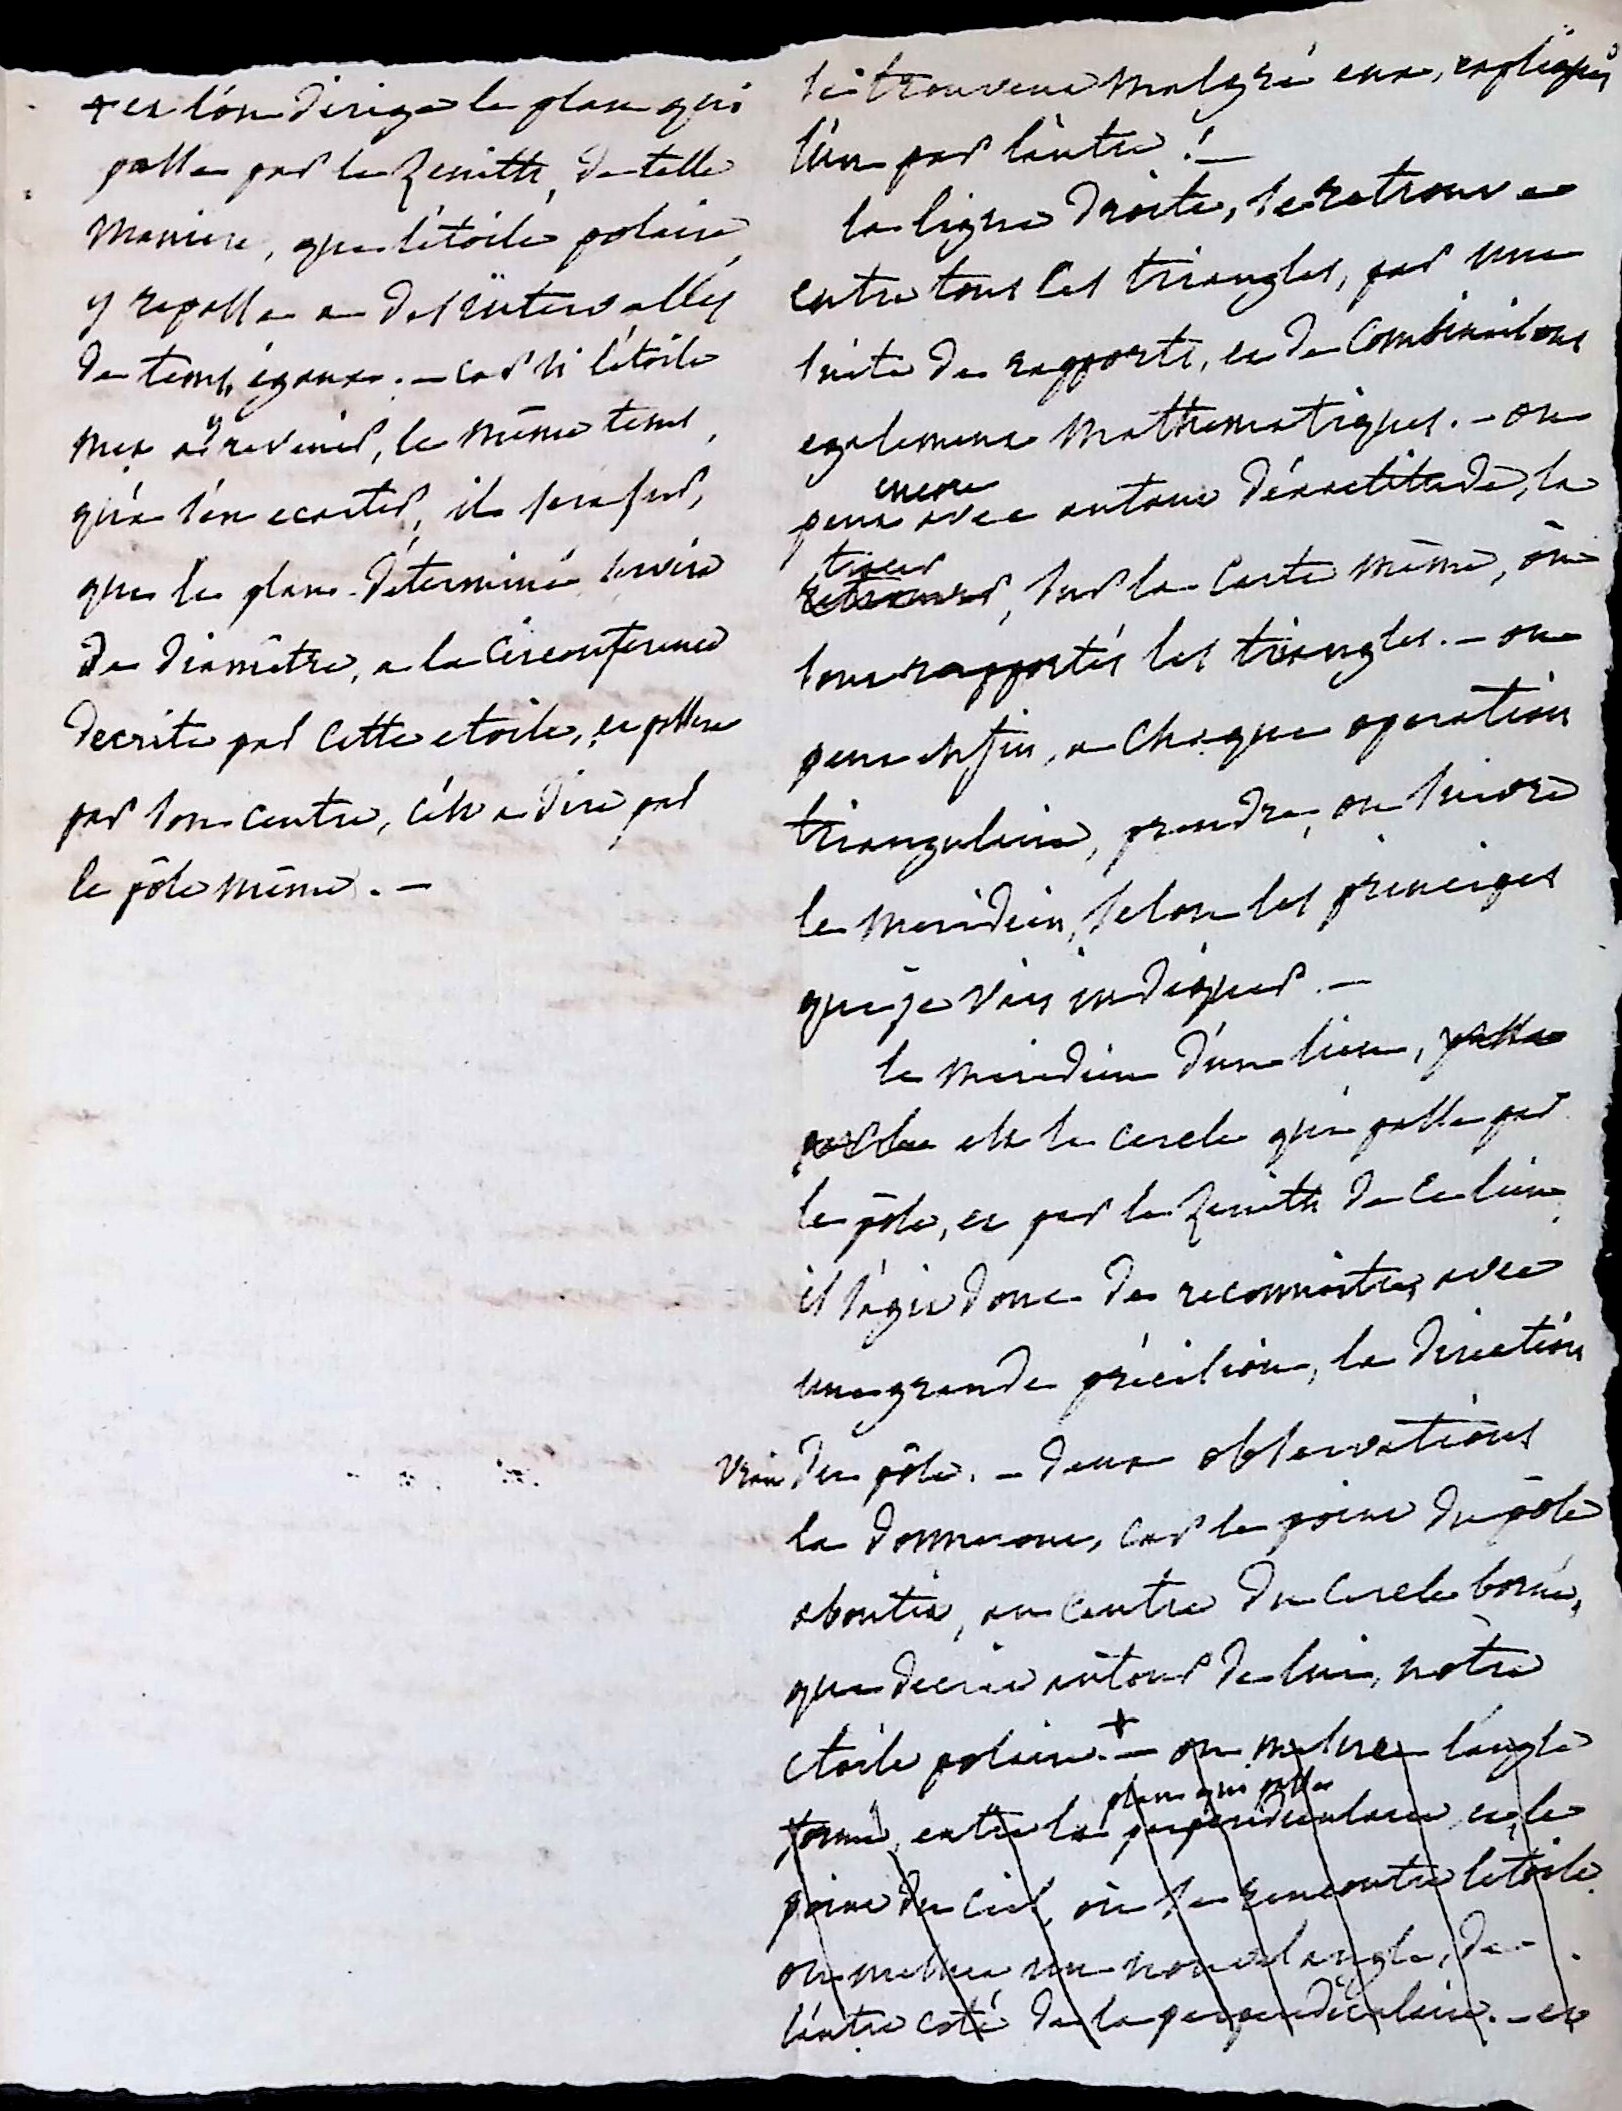 + et l'on dirige le plan qui
passe par le Zenitth, de telle
maniere, que l'étoile polaire,
y repasse a des intervalles
de tems, égaux. – car si l'étoile
met a y revenir, le même tems,
qu'a s'en ecarter, il sera sur,
que le plan déterminé servira
de diamêtre, a la circonference
decrite par cette etoile, et passera
par son centre, c'est a dire par
le pôle même. –
se trouvent malgré eux, expliqués
l'un par l'autre ! –
la ligne droite, se retrouve
entre tous les triangles, par une
suite de rapports, et de combinaisons
egalement mathematiques. – on
encore
peut avec autant d'éxactitude, la
tracer
retrouver, sur la carte même, où
sont rapportés les triangles. – on
peut enfin, a chaque operation
triangulaire, prendre, ou suivre
le meridien, selon les principes
que je vais indiquer. –
le meridien d'un lieu, passe
par le est le cercle qui passe par
le pôle, et par le Zenith de ce lieu
il s'agit donc de reconnoitre, avec
une grande précision, la direction
vrai du pôle. – deux observations
la donneront, car le point du pôle
aboutit, au centre du cercle borné,
que decrit autour de lui, nôtre
etoile polaire. + – on mesure l'angle
plan qui passe
formé, entre la perpendiculaire, et le
point du ciel, où se rencontre l'etoile.
on mesure un nouvel angle, de
l'autre coté de la perpendiculaire. – et